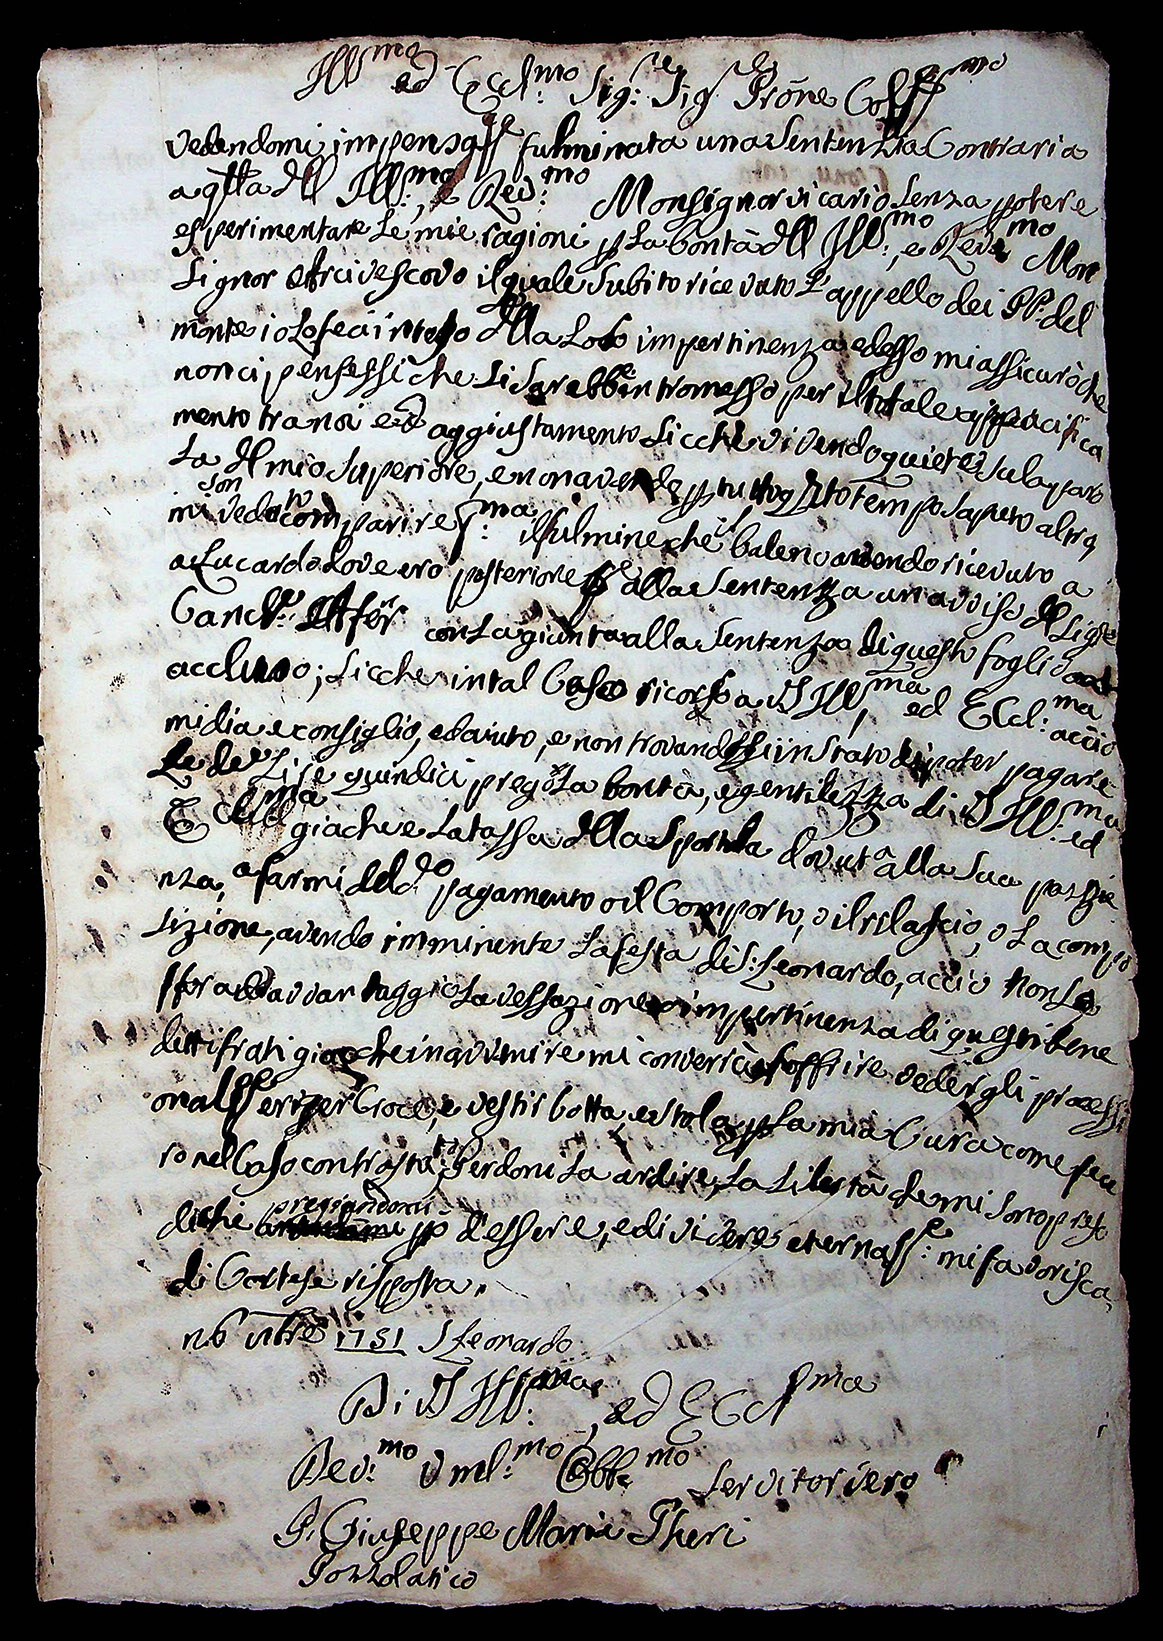 Ill.mo ed Eccl.mo Sig.re Sig.re Prõne Col.mo
vedendomi impensate fulminata una sentenza Contraria
a q.lla dell Ill.mo, e Rev.mo Monsignor vicario senza potere
esperimentare le mie ragioni p la bontà dell Ill.mo, e Rev.mo Mon
signor Arcivescovo il quale subito ricevuto l'appello dei PP. del
monte io lo feci inteso della loro impertinenza ed esso mi assicurò che
non ci pensassi che si sarebbe intromesso per il totale appacifica
mento tra noi ed aggiustamento sicche vivendo quieto sula paro
la del mio superiore, e non avendo p tutto q.sto tempo saputo altro
mi son veduto comparire il fulmine che balenò avendo ricevuto a
a Lucardo dove ero posteriore alla sentenza un avviso del Sig.re
Canc.re con la giunta alla sentenza di questo foglio
accluso; sicche in tal Caso ricorso a VS Ill.ma ed Eccl.ma acciò
mi dia e consiglio, ed aiuto, e non trovandomi in stato di poter pagare
le lire quindici prego la bontà, e gentilezza di VS Ill.ma ed
Eccl.ma giache è la tassa della sportula dovuta alla sua pazzie
nza, a farmi del d.o pagamento o il Comporto, o il rilascio, o la compo
sizione, avendo imminente la festa di S: Leonardo, acciò non
avvantaggio la vessazione impertinenza di questi bene
detti frati giache in avvenire mi converrà soffrire veder gli processi
erizer Croce, e vestir Cotta, e stola p la mia Cura come fece
ro nel Caso contrastato. Perdoni la ardire, la libertà che mi sono pre
di che pregiandomi p d'essere, e di vivere eternass.e mi favorisca
di Cortese risposta.
n.6 1751 S Leonardo
Di VS Ill.ma, ed Eccl.ma
Dev.mo Uml.mo Obb.mo Servitor vero
P. Giuseppe Maria Theri
Pozzolatico